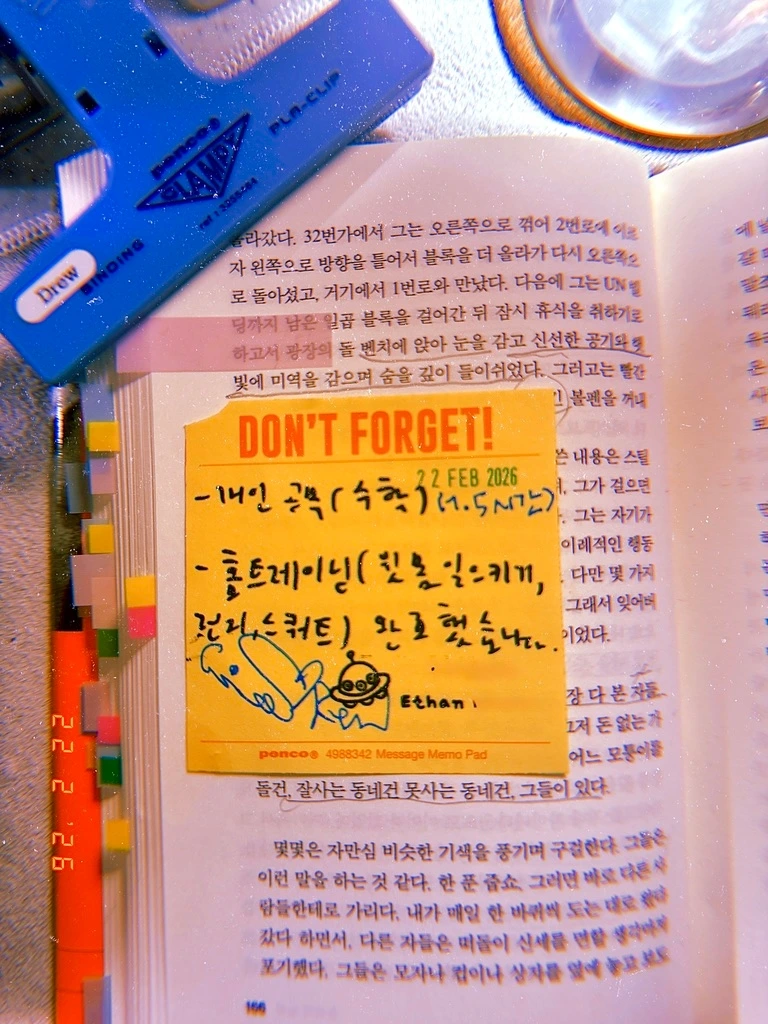 penco®
CLAMPY
PLA-CLIP
BINDING
Drew
라갔다. 32번가에서 그는 오른쪽으로 꺾어 2번로에
자 왼쪽으로 방향을 틀어서 블록을 더 올라가 다시 오른쪽으
로 돌아섰고, 거기에서 1번로와 만났다. 다음에 그는 UN 빌
딩까지 남은 일곱 블록을 걸어간 뒤 잠시 휴식을 취하기로
하고서 광장의 돌 벤치에 앉아 눈을 감고 신선한 공기와 햇
빛에 미역을 감으며 숨을 깊이 들이쉬었다. 그러고는 빨간
볼펜을 꺼내
DON'T FORGET!
22 FEB 2026
- 개인 공부 (수학) (1.5시간)
- 홈트레이닝 (윗몸일으키기,
런지, 스쿼트) 완료했습니다.
Ethan.
penco® 4988342 Message Memo Pad
쓴 내용은 스틸
그가 걸으면
그는 자기가
이례적인 행동
다만 몇 가지
그래서 잊어버
이었다.
장 다 본 자들.
돈 없는 가
어느 모퉁이를
들건, 잘사는 동네건 못사는 동네건, 그들이 있다.
몇몇은 자만심 비슷한 기색을 풍기며 구걸한다. 그들은
이런 말을 하는 것 같다. 한 푼 줍쇼, 그러면 바로 다른 사
람들한테로 가리다. 내가 매일 한 바퀴씩 도는 대로 왔다
갔다 하면서. 다른 자들은 떠돌이 신세를 면할 생각마저
포기했다. 그들은 모자나 컵이나 상자를 앞에 놓고 보도
166
22 2 '26